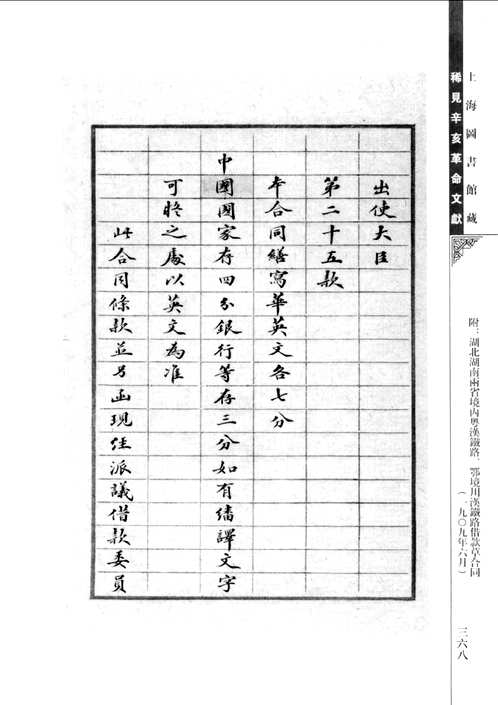 上海圖書館藏
稀見辛亥革命文獻
附：湖北湖南兩省境內粵漢鐵路、鄂境川漢鐵路借款草合同
（一九〇九年六月）
三六八
出使大臣
第二十五款
本合同繕寫華英文各七分
中國國家存四分銀行等存三分如有繙譯文字
可疑之處以英文為准
此合同條款並另函現經派議借款委員